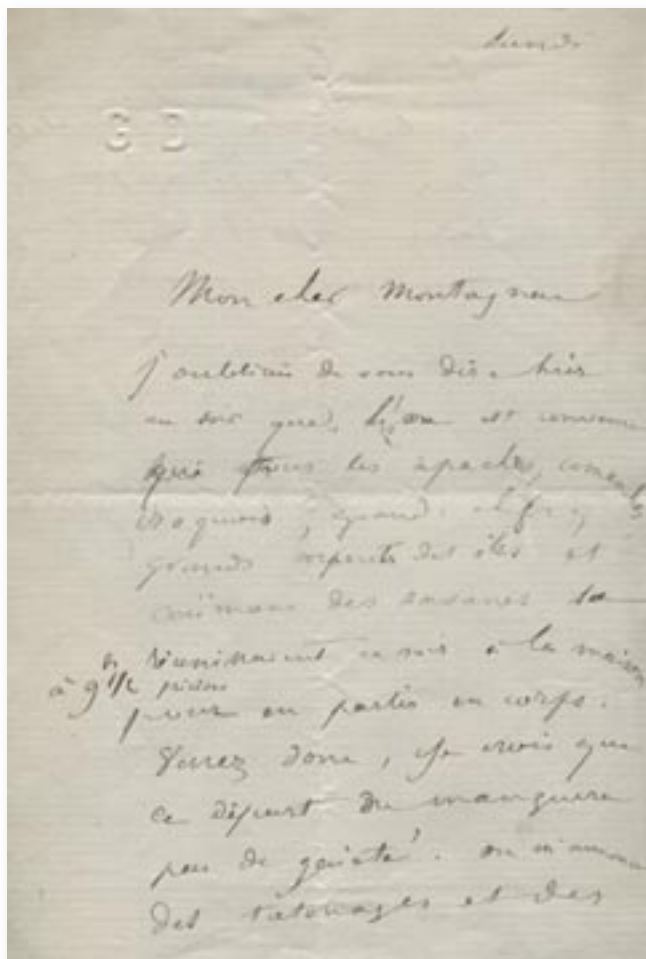 Lundi
G D
Mon cher Montagnac
J'oubliais de vous dire hier
au soir que, l'on est convenu
que tous les apaches, comanches,
iroquois, grands chefs,
grands serpents des îles et
caïmans des savanes se
réunissaient ce soir à la maison
à 9h 1/2 précises
pour en partir en corps.
Venez donc, je crois que
ce départ ne manquera
pas de gaieté. on m'annonce
des tatouages et des